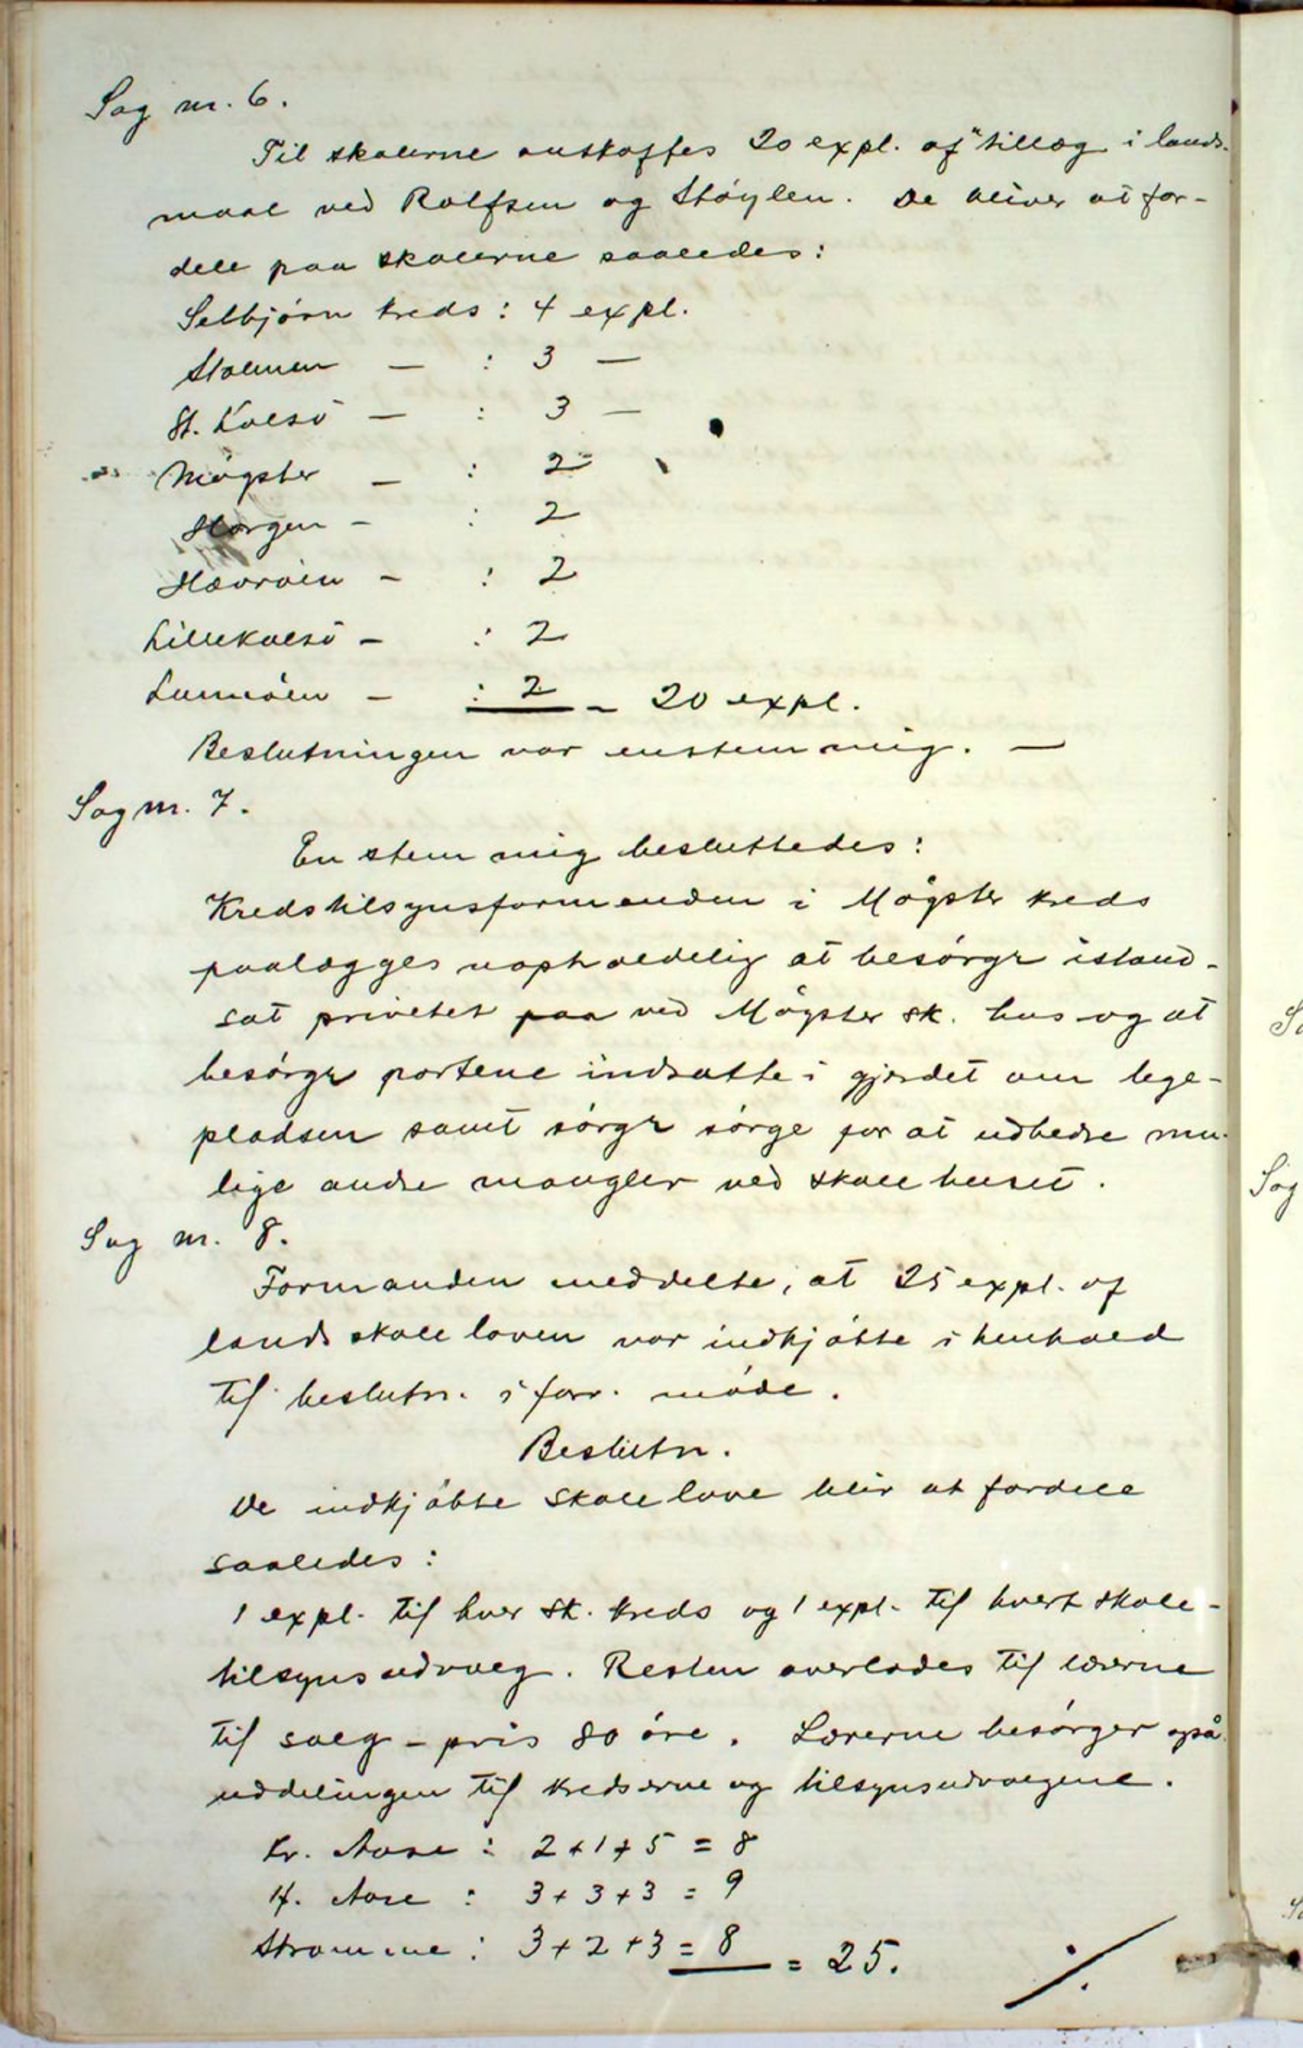 Sag nr. 6.
Til skolerne anskaffes 20 expl. af "tillæg i lands-
maal ved Rolfsen og Støylen. De bliver at for-
dele paa skolerne saaledes:
Selbjørn kreds: 4 expl.
Stolmen — : 3 —
St. Kalsø — : 3 —
Møgster — : 2
Horgen — : 2
Hævrøin — : 2
Lillekalsø — : 2
Lunnøen — : 2 = 20 expl.
Beslutningen var enstemmig. —
Sag nr. 7.
Enstemmig besluttedes:
Kredstilsynsformanden i Møgster kreds
paalægges uopholdelig at besørge istand-
sat privetet paa ved Møgster sk. hus og at
besørge portene indsatte i gjerdet om lege-
pladsen samt sørge sørge for at udbedre mu-
lige andre mangler ved skolehuset.
Sag nr. 8.
Formanden meddelte, at 25 expl. af
landsskoleloven var indkjøbte i henhold
til beslutn. i forr. møde.
Beslutn.
De indkjøbte skolelove blir at fordele
saaledes:
1 expl. til hver sk. kreds og 1 expl. til hvert skole-
tilsynsudvalg. Resten overlades til lærerne
til salg – pris 80 øre. Lærerne besørger også
uddelingen til kredserne og tilsynsudvalgene.
Kr. Aase : 2 + 1 + 5 = 8
H. Aase : 3 + 3 + 3 = 9
Strømme : 3 + 2 + 3 = 8 = 25.
Sag